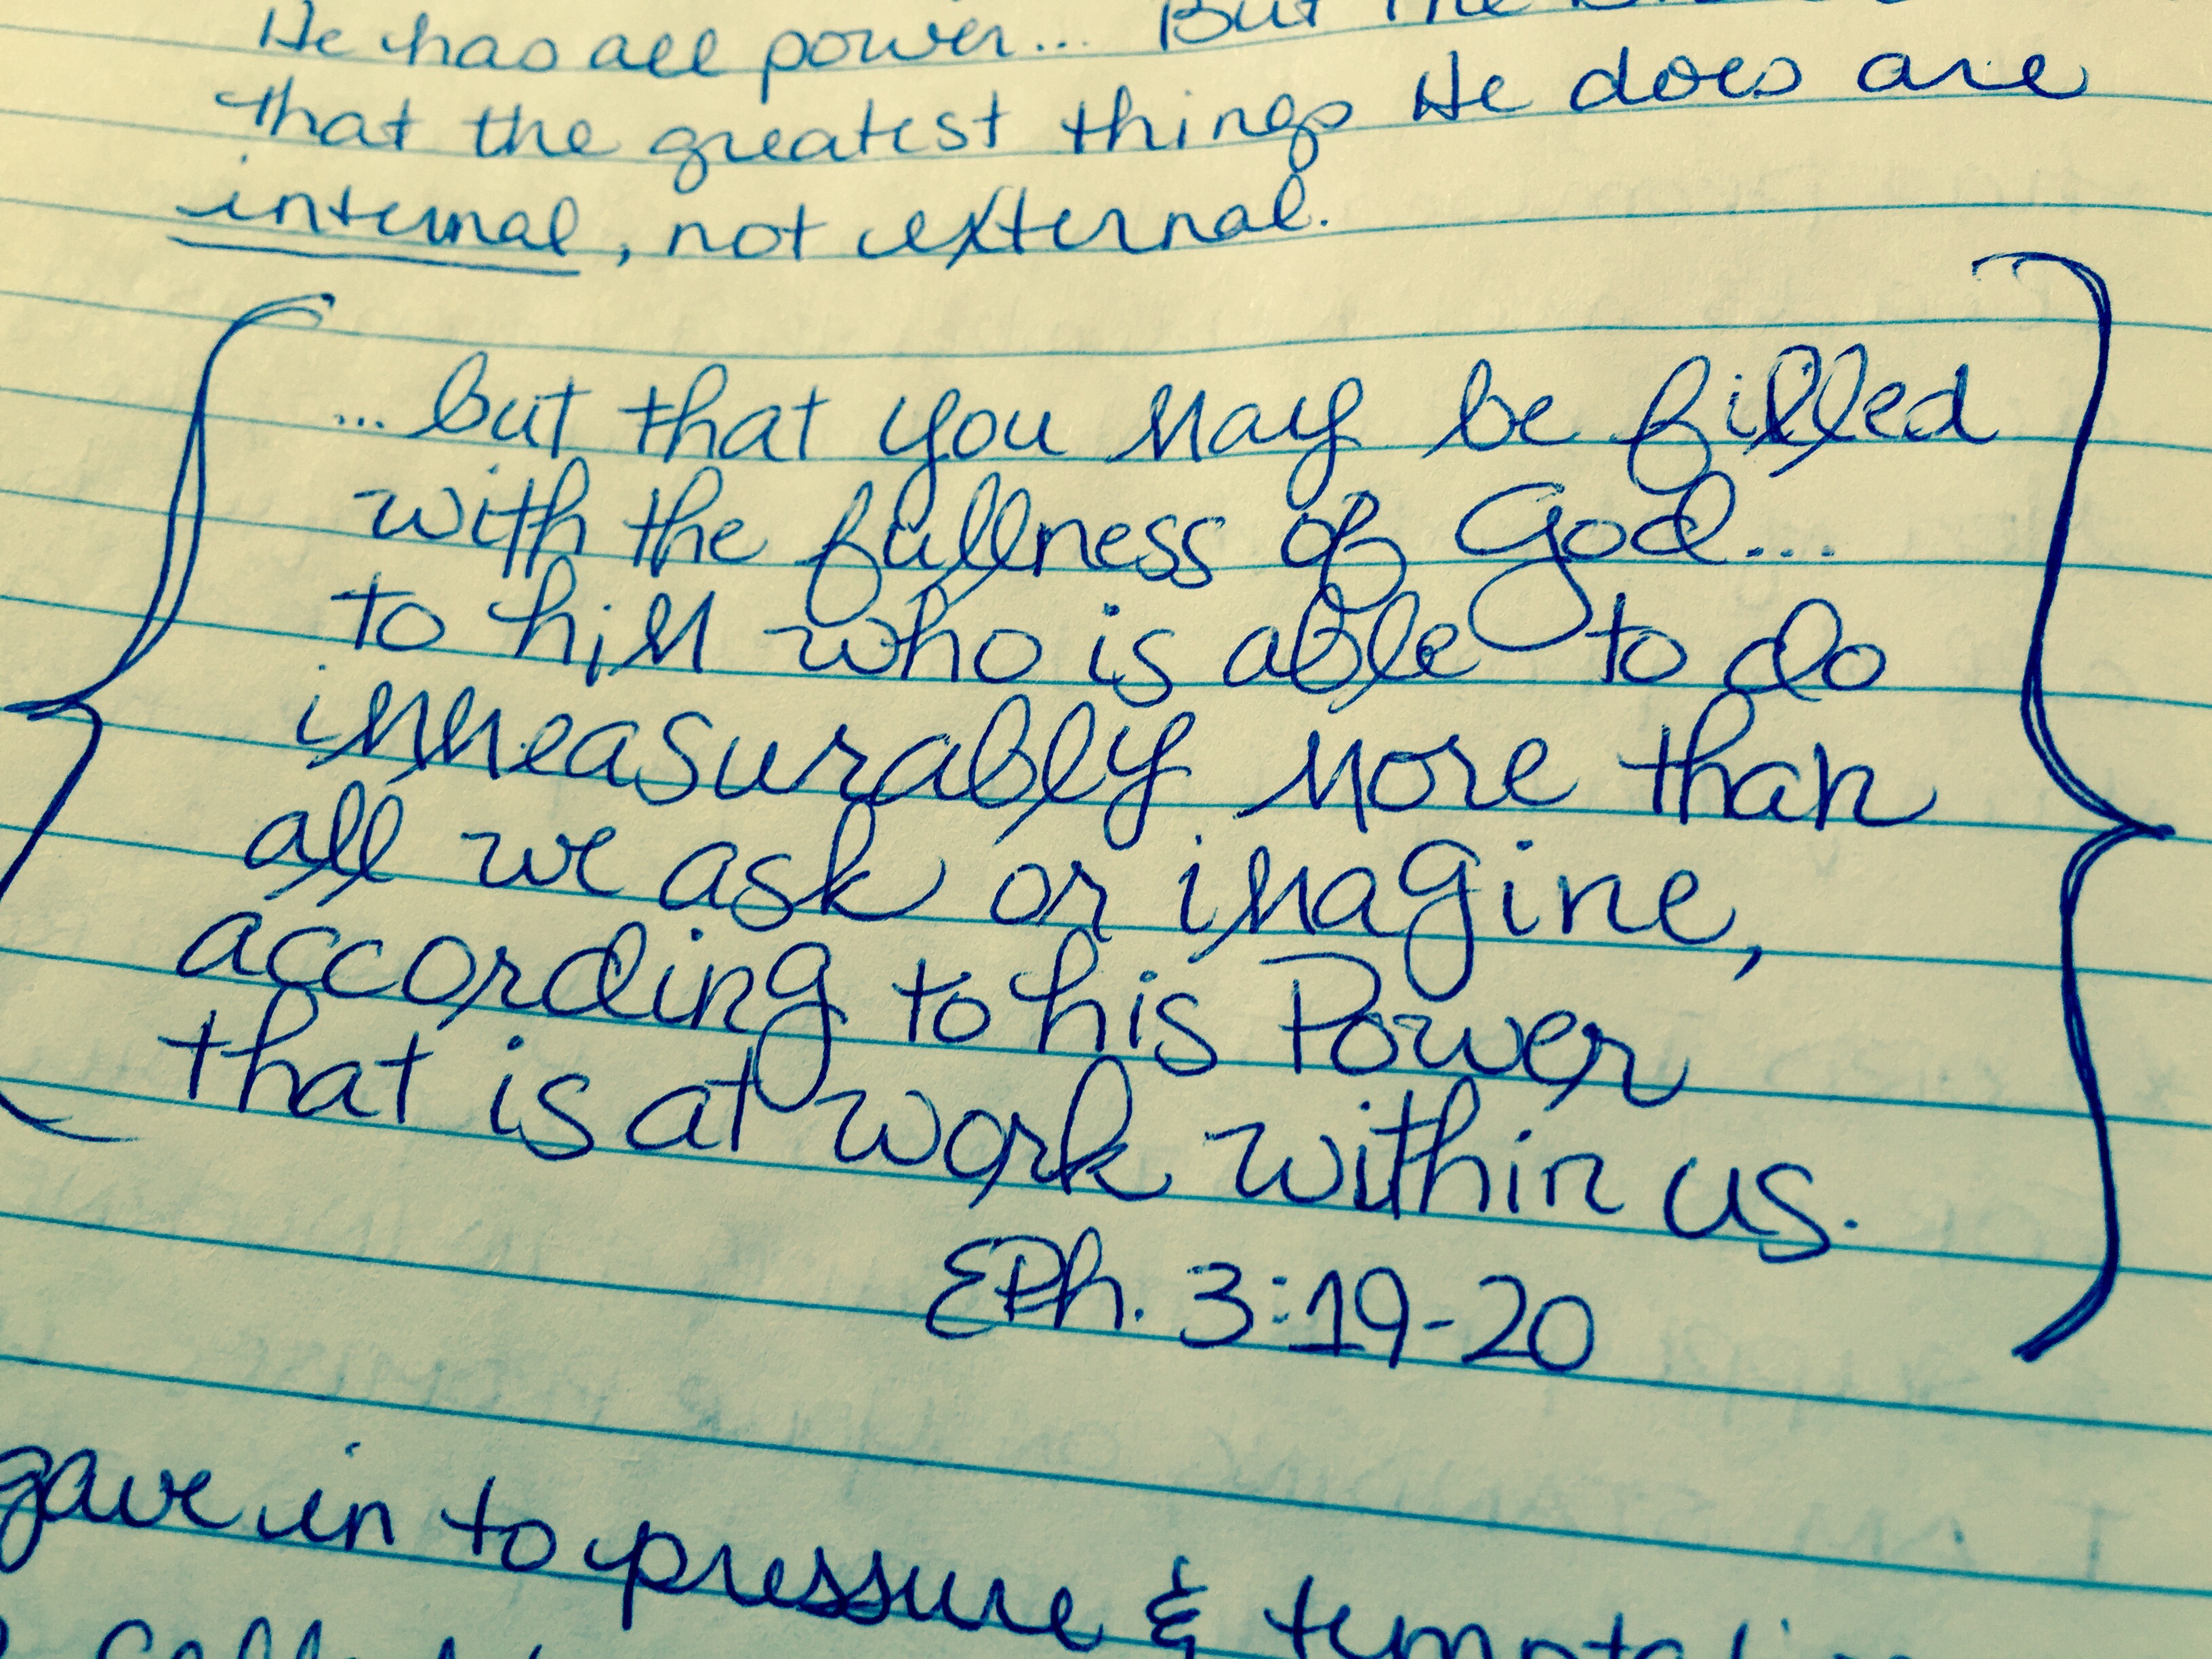 He has all power... But the
that the greatest things He does are
internal, not external.
... but that you may be filled
with the fullness of God...
to him who is able to do
immeasurably more than
all we ask or imagine,
according to his Power
that is at work within us.
EPh. 3:19-20
gave in to pressure &